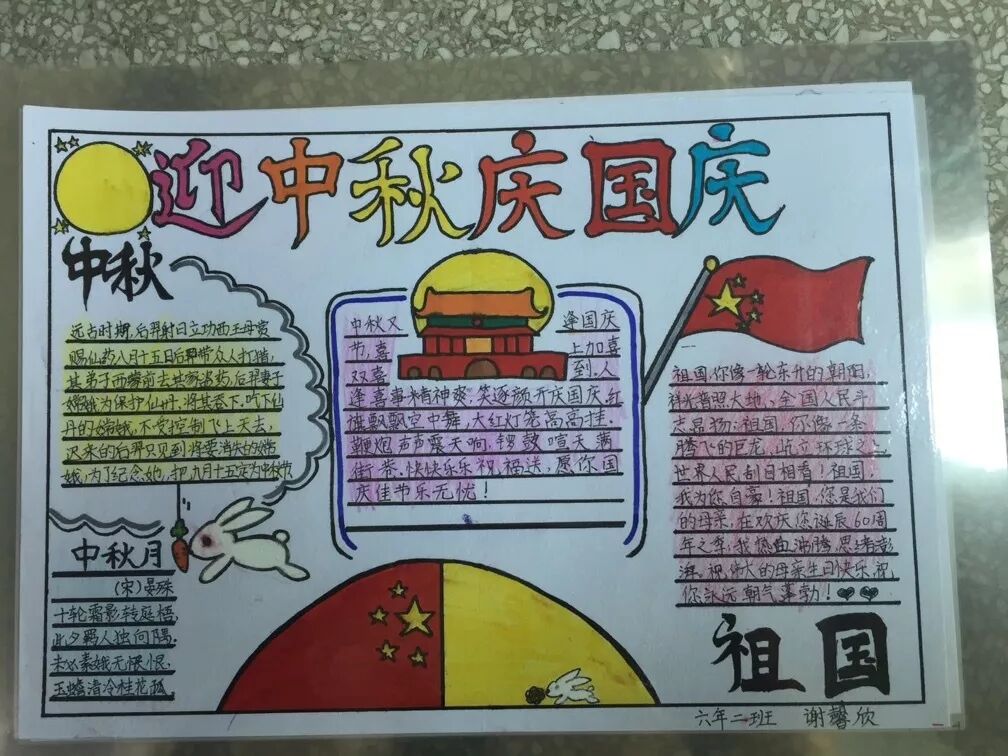 迎中秋庆国庆
中秋
远古时期,后羿射日立功西王母赏
赐仙药八月十五日后羿带众人打猎,
其弟子西蒙前去其家盗药,后羿妻子
嫦娥为保护仙丹,将其吞下,吃下仙
丹的嫦娥,不受控制飞上天去,
迟来的后羿只见到将要消失的嫦
娥,为了纪念她,把八月十五定为中秋节
中秋月
(宋)晏殊
十轮霜影转庭梧,
此夕羁人独向隅,
未必素娥无怅恨,
玉蟾清冷桂花孤,
中秋又 逢国庆
节,喜 上加喜
双喜 到,人
逢喜事精神爽,笑逐颜开庆国庆,红
旗飘飘空中舞,大红灯笼高高挂,
鞭炮声声震天响,锣鼓喧天满
街巷,快快乐乐祝福送,愿你国
庆佳节乐无忧!
祖国,你像一轮东升的朝阳,
祥光普照大地,全国人民斗
志昂扬;祖国,你像一条
腾飞的巨龙,屹立环球之上
世界人民刮目相看!祖国,
我为您自豪!祖国,您是我们
的母亲,在欢庆您诞辰60周
年之季,我热血沸腾,思绪彭
湃,祝伟大的母亲生日快乐,祝
你永远朝气蓬勃!
祖国
六年二班 谢馨欣